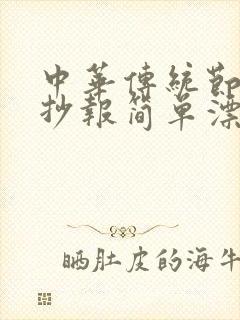 中華傳統節
抄報简单漂
晒肚皮的海牛